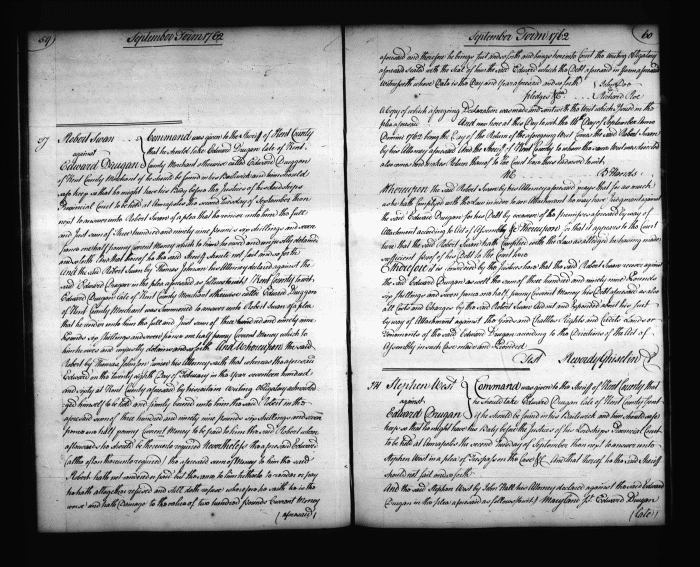 59)
September Term 1762
97
Robert Swan
against
Edward Drugan
Command was given to the Sheriff of Kent County
that he should take Edward Drugan late of Kent
County Merchant otherwise called Edward Druggan
of Kent County Merchant if he should be found in his Bailiwick and him should
safe keep so that he might have his Body before the Justices of his Lordships
Provincial Court to be held at Annapolis the second Tuesday of September then
next to answer unto Robert Swan of a plea that he render unto him the full
and Just sum of three hundred and ninety nine pounds six shillings and seven
pence one half penny Current Money which to him he owes and unjustly detains
and so forth And that thereof he the said Sheriff should not fail and so forth
And the said Robert Swan by Thomas Johnson his Attorney declared against the
said Edward Drugan in the plea aforesaid as followeth to wit Kent County to wit
Edward Drugan late of Kent County Merchant otherwise called Edward Druggan
of Kent County Merchant was summoned to answer unto Robert Swan of a plea
that he render unto him the full and Just sum of three hundred and ninety nine
Pounds six shillings and seven pence one half penny Current Money which to
him he owes and unjustly detains and so forth And Whereupon the said
Robert by Thomas Johnson junior his Attorney saith that whereas the aforesaid
Edward on the twenty eighth Day of February in the Year seventeen hundred
and sixty at Kent County aforesaid by his certain Writing Obligatory acknowled
ged himself to be held and firmly bound unto him the said Robert in the
aforesaid sum of three hundred and ninety nine pounds six shillings and seven
pence one half penny Current Money to be paid to him the said Robert when
afterwards he should be thereunto required Nevertheless the aforesaid Edward
(altho often thereunto required) the aforesaid sum of Money to him the said
Robert hath not rendered or paid but the same to him hitherto to render or pay
he hath altogether refused and still doth refuse wherefore he saith he is the
worse and hath Damage to the value of two hundred pounds Current Money
(aforesaid)
September Term 1762
60
aforesaid and therefore he brings suit and so forth and brings here into Court the Writing Obligatory
aforesaid sealed with the Seal of him the said Edward which the Debt aforesaid in form aforesaid
Witnesseth whose Date is the Day and Year aforesaid and so forth
John Doe
pledges &c
Richard Roe
A Copy of which aforegoing Declaration was made and sent with the Writ which issued in the
plea aforesaid And now here at this Day to wit the 14th Day of September Anno
Domini 1762 being the Day of the Return of the aforegoing Writ Comes the said Robert Swan
by his Attorney aforesaid And the Sheriff of Kent County to whom the same Writ was directed
also comes and makes Return thereof to the Court here thus Endorsed to wit
Whereupon the said Robert Swan by his Attorney aforesaid prays that for as much
as he hath Complied with the Law in order to an Attachment he may have Judgment against
the said Edward Drugan for his Debt by reason of the premises aforesaid by way of
Attachment according to Act of Assembly &c Whereupon for that it appears to the Court
here that the said Robert Swan hath Complied with the Law as alledged he having made
sufficient proof of his Debt to the Court here
Therefore it is considered by the Justices here that the said Robert Swan recover against
the said Edward Drugan as well the sum of three hundred and ninety nine Pounds
six shillings and seven pence one half penny Current Money his Debt aforesaid as also
all Costs and Charges by the said Robert Swan laid out and expended about his suit
by way of Attachment against the Goods and Chattles Rights and Credits Lands or
Tenements of the said Edward Drugan according to the Directions of the Act of
Assembly in such Case made and Provided
Test
Reverdy Ghiselin
98
Stephen West
against
Edward Drugan
Command was given to the Sheriff of Kent County that
he should take Edward Drugan late of Kent County Gent
if he should be found in his Bailiwick and him should safe
keep so that he might have his Body before the Justices of his Lordships Provincial Court
to be held at Annapolis the second Tuesday of September then next to answer unto
Stephen West in a plea of Trespass on the Case &c And that thereof he the said Sheriff
should not fail and so forth
And the said Stephen West by John Hall his Attorney declared against the said Edward
Drugan in the plea aforesaid as followeth to wit Maryland ss Edward Drugan
(late)